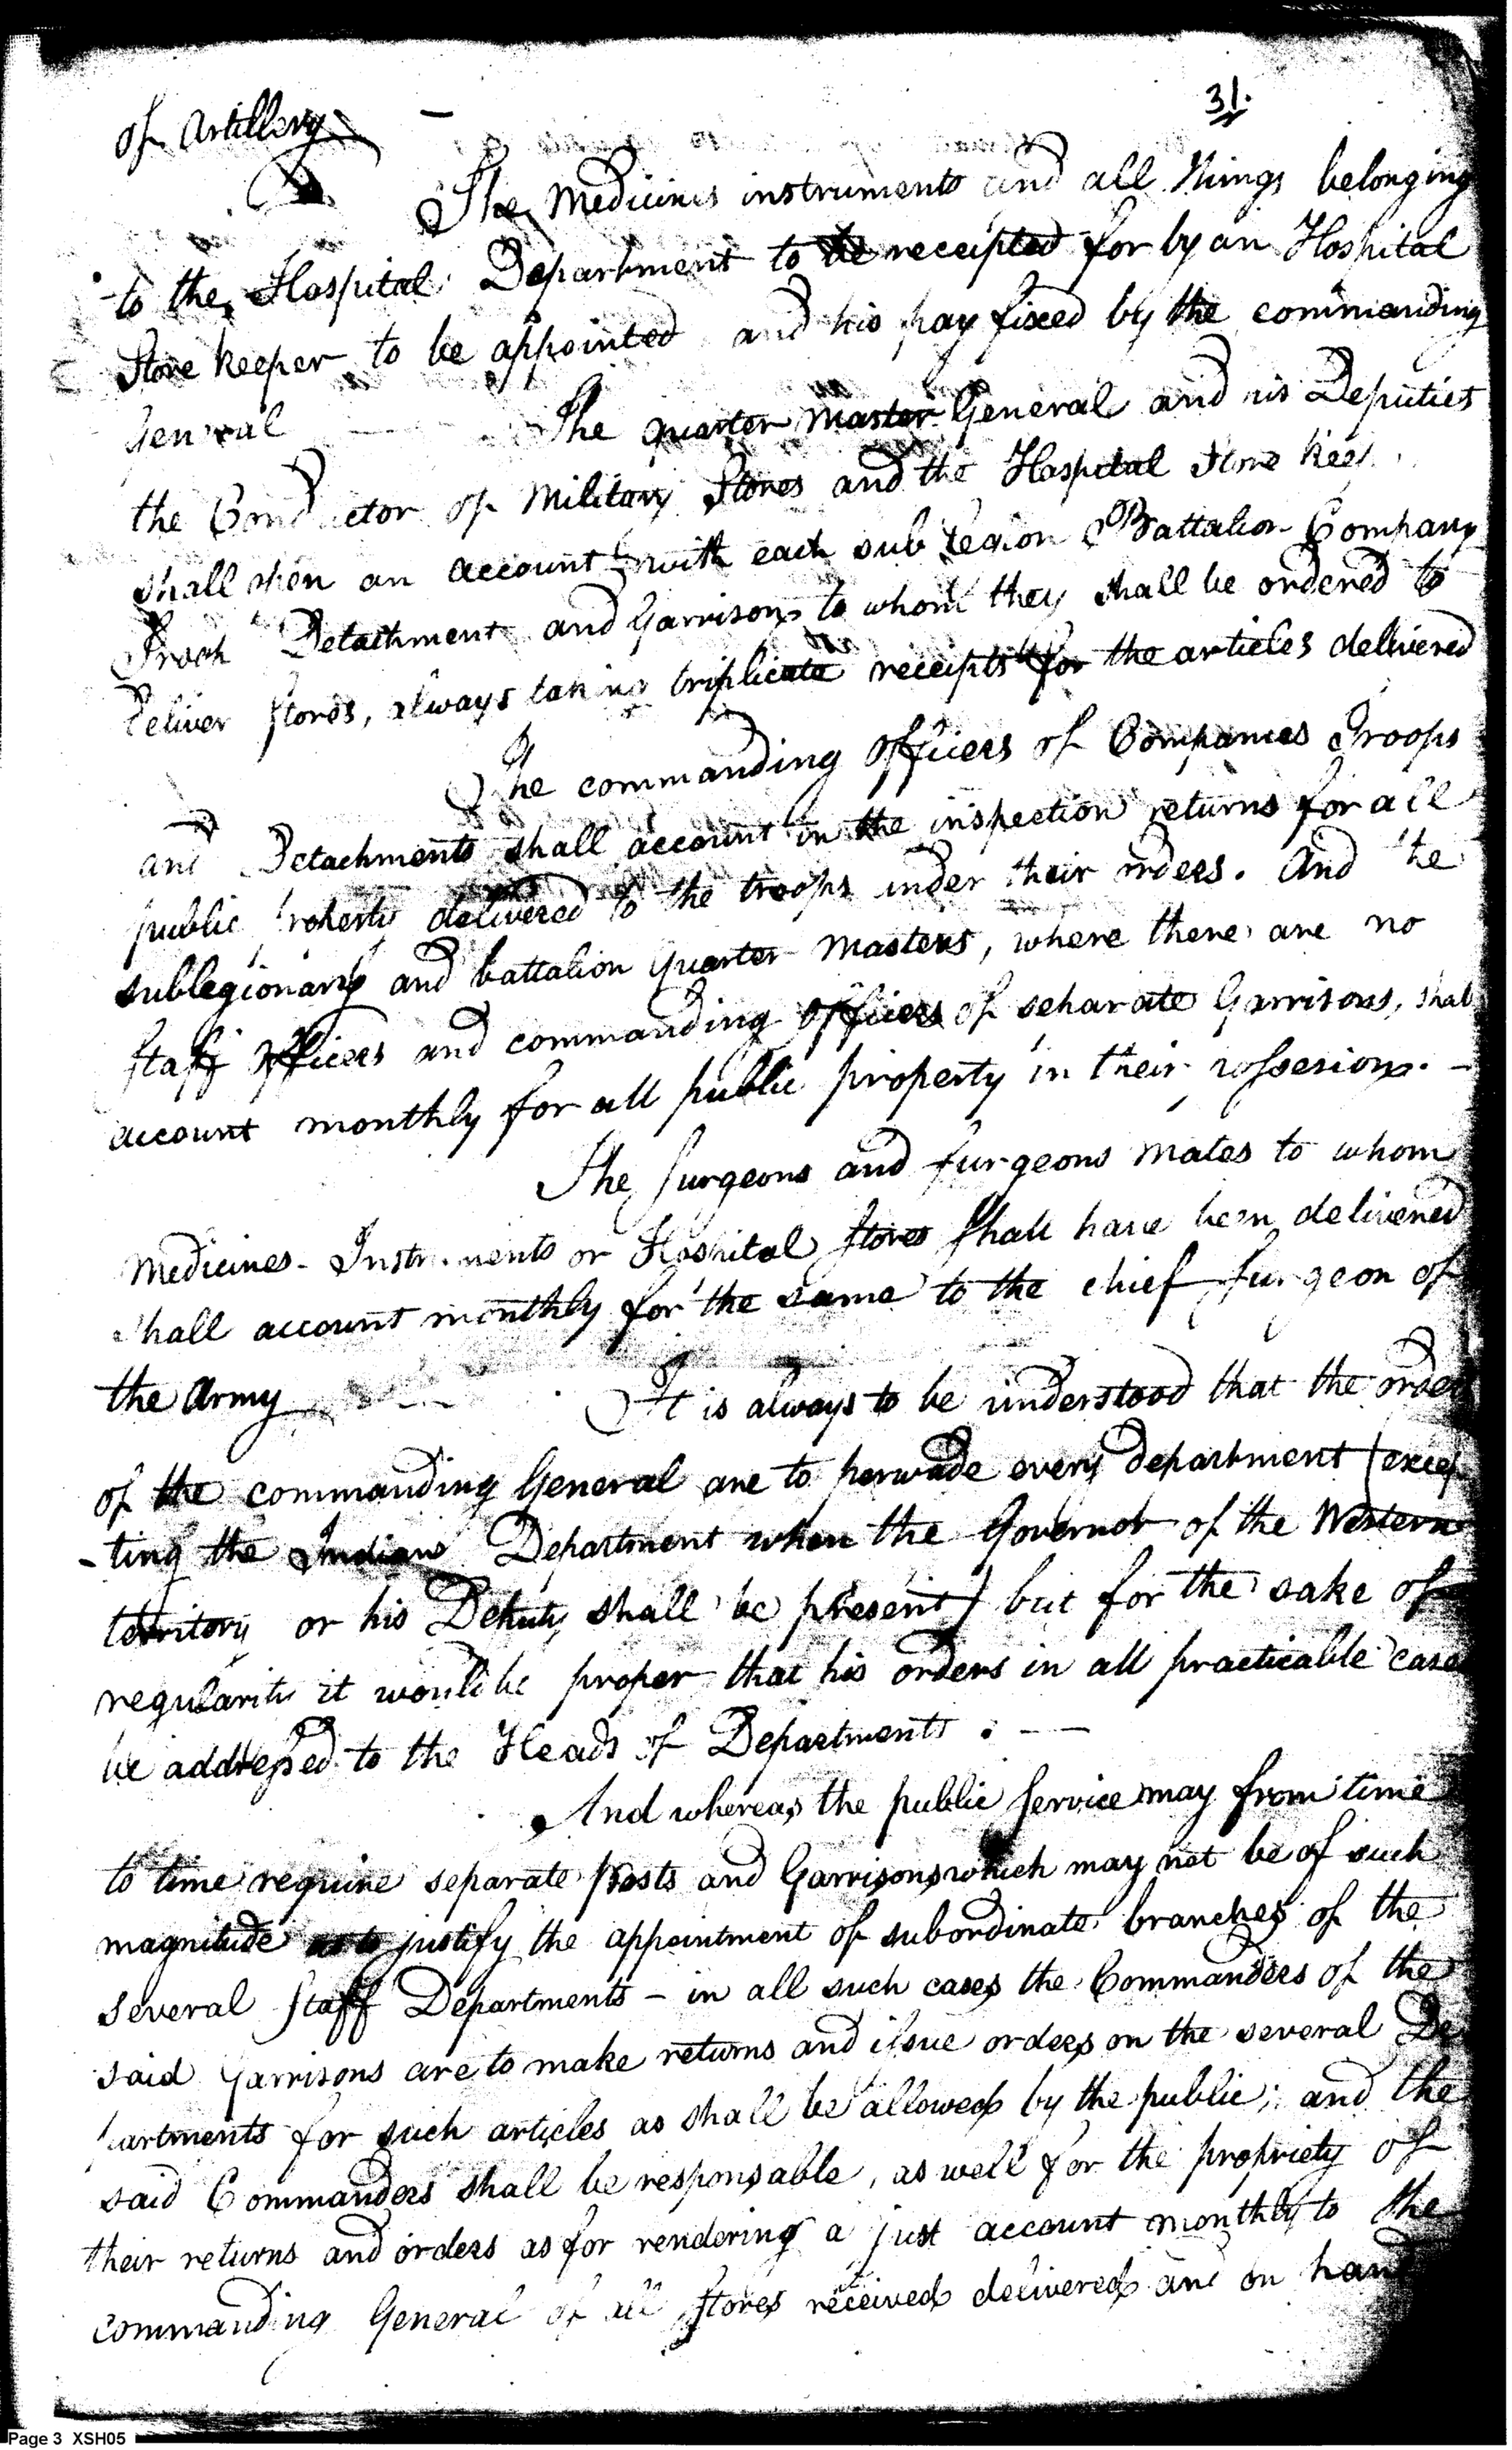 31.
of Artillery
The Medicines instruments and all things belonging
to the Hospital Department to be receipted for by an Hospital
Store keeper to be appointed and his pay fixed by the commanding
General
The Quarter Master General and his Deputies
the Conductor of Military Stores and the Hospital Store keep
shall open an account with each sub Legion Battalion Company
Troop Detachment and Garrison to whom they shall be ordered to
deliver stores, always taking triplicate receipts for the articles delivered
The commanding officers of Companies Troops
and Detachments shall account in the inspection returns for all
public property delivered to the troops under their orders. And the
sublegionary and battalion Quarter Masters, where there are no
staff officers and commanding officers of separate Garrisons, shall
account monthly for all public property in their possesion. -
The surgeons and surgeons mates to whom
Medicines - Instruments or Hospital stores shall have been delivered
shall account monthly for the same to the chief surgeon of
the Army
It is always to be understood that the orders
of the commanding General are to pervade every department (excep
-ting the Indian Department when the Governor of the Western
territory or his Deputy shall be present) but for the sake of
regularity it would be proper that his orders in all practicable cases
be addressed to the Heads of Departments. -
And whereas the public service may from time
to time require separate posts and Garrisons which may not be of such
magnitude as to justify the appointment of subordinate branches of the
several staff Departments - in all such cases the Commanders of the
said Garrisons are to make returns and issue orders on the several De
partments for such articles as shall be allowed by the public; and the
said Commanders shall be responsable, as well for the propriety of
their returns and orders as for rendering a just account monthly to the
commanding General of all stores received delivered and on hand
Page 3 XSH05